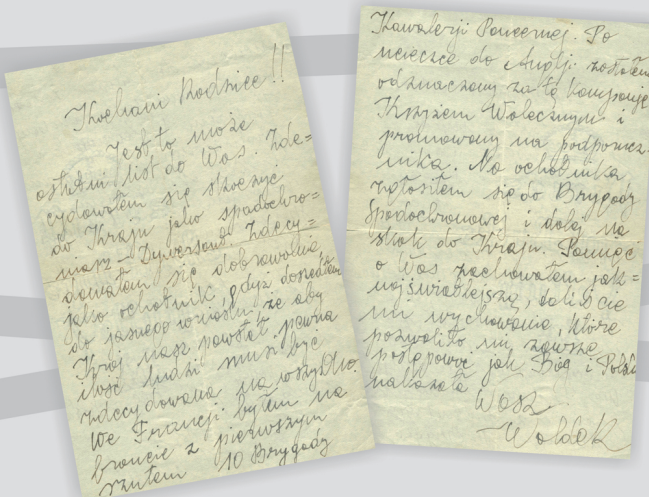 Kochani Rodzice!!
Jest to może
ostatni list do Was. Zde=
cydowałem się skoczyć
do Kraju jako spadochro=
niarz – Dywersant. Zdecy=
dowałem się dobrowolnie
jako ochotnik, gdyż doszedłem
do jasnego wniosku, że aby
Kraj nasz powstał pewna
ilość ludzi musi być
zdecydowana na wszystko.
We Francji byłem na
froncie z pierwszym
rzutem 10 Brygady
Kawalerji Pancernej. Po
ucieczce do Anglji zostałem
odznaczony za tę kampanję
Krzyżem Walecznym i
promowany na podporucz=
nika. Na ochotnika
zgłosiłem się do Brygady
Spadochronowej i dalej na
skok do Kraju. Pamięć
o Was zachowałem jak=
najświętszą, daliście
mi wychowanie, które
pozwoliło mi zawsze
postępować jak Bóg i Polska
nakazała
Wasz
Waldek